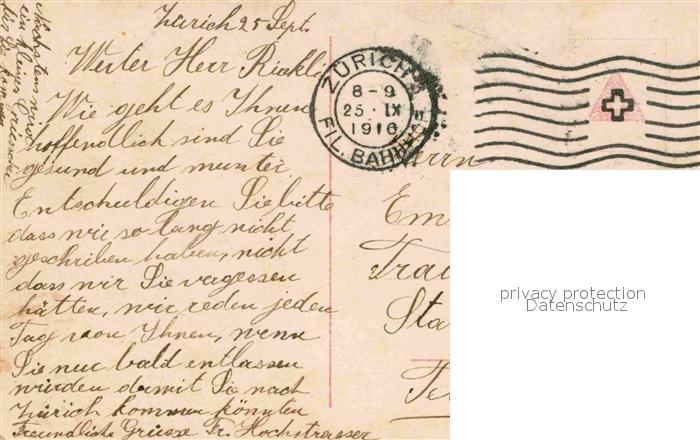 Zürich 25 Sept.
Werter Herr Rickli
Wie geht es Ihnen
hoffendlich sind Sie
gesund und munter.
Entschuldigen Sie bitte
dass wir so lang nicht
geschriben haben, nicht
dass wir Sie vergessen
hätten, wir reden jeden
Tag von Ihnen, wenn
Sie nur bald entlassen
würden damit Sie nach
Zürich kommen könnten
Freundliche Grüsse Fr. Hochstrasser
Nächstens wird
ein kleines
für Sie kommen
ZÜRICH
8-9
25.IX
1916
FIL. BAHNH
Herrn
Em
Sta
privacy protection
Datenschutz